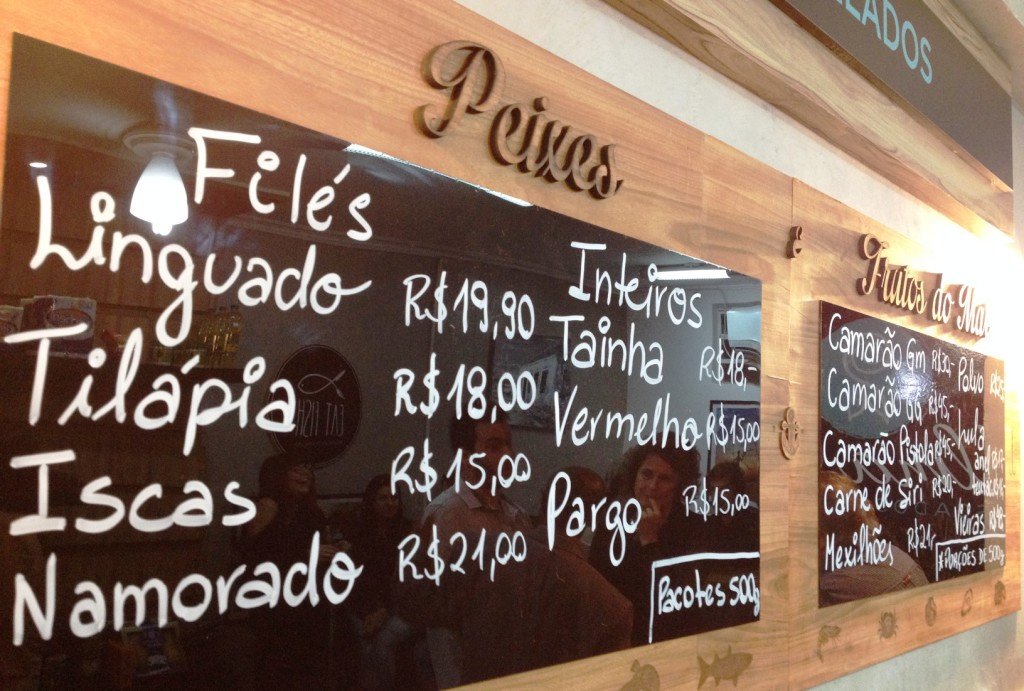 Peixes
Filés
Linguado R$19,90
Tilápia R$18,00
Iscas R$15,00
Namorado R$21,00
Inteiros
Tainha R$18,-
Vermelho R$15,00
Pargo R$15,00
Pacotes 500g
&
Frutos do Mar
Camarão Gm R$30,-
Camarão GG R$45,-
Camarão Pistola R$45,-
Carne de Siri
Mexilhões R$21,-
Polvo
lula
anel
Vieiras
*PORÇÕES DE 500g
LADOS